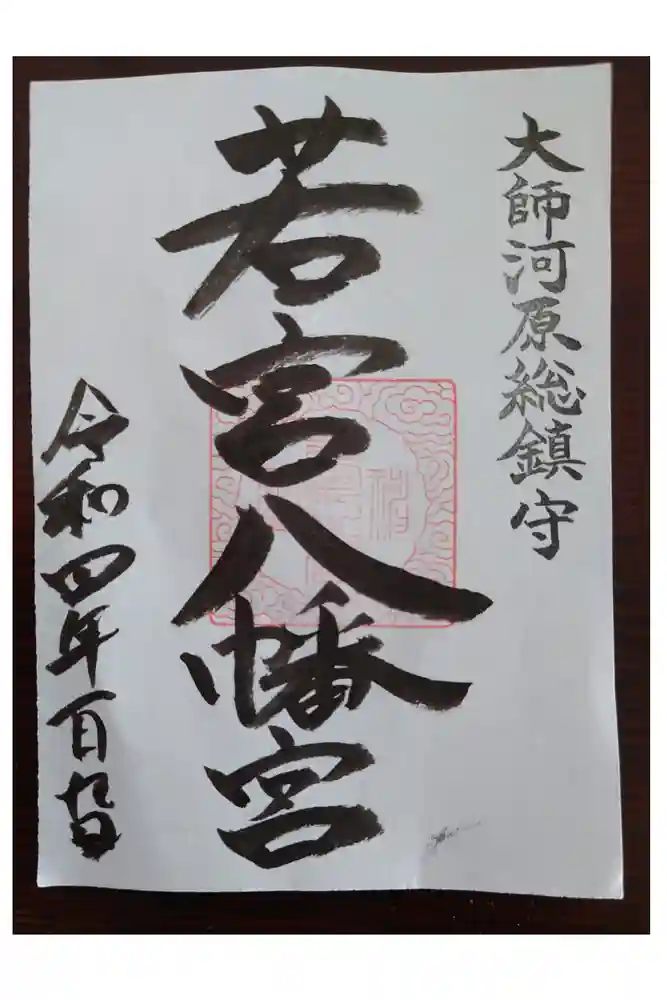 大師河原総鎮守
若宮八幡宮
令和四年一月九日